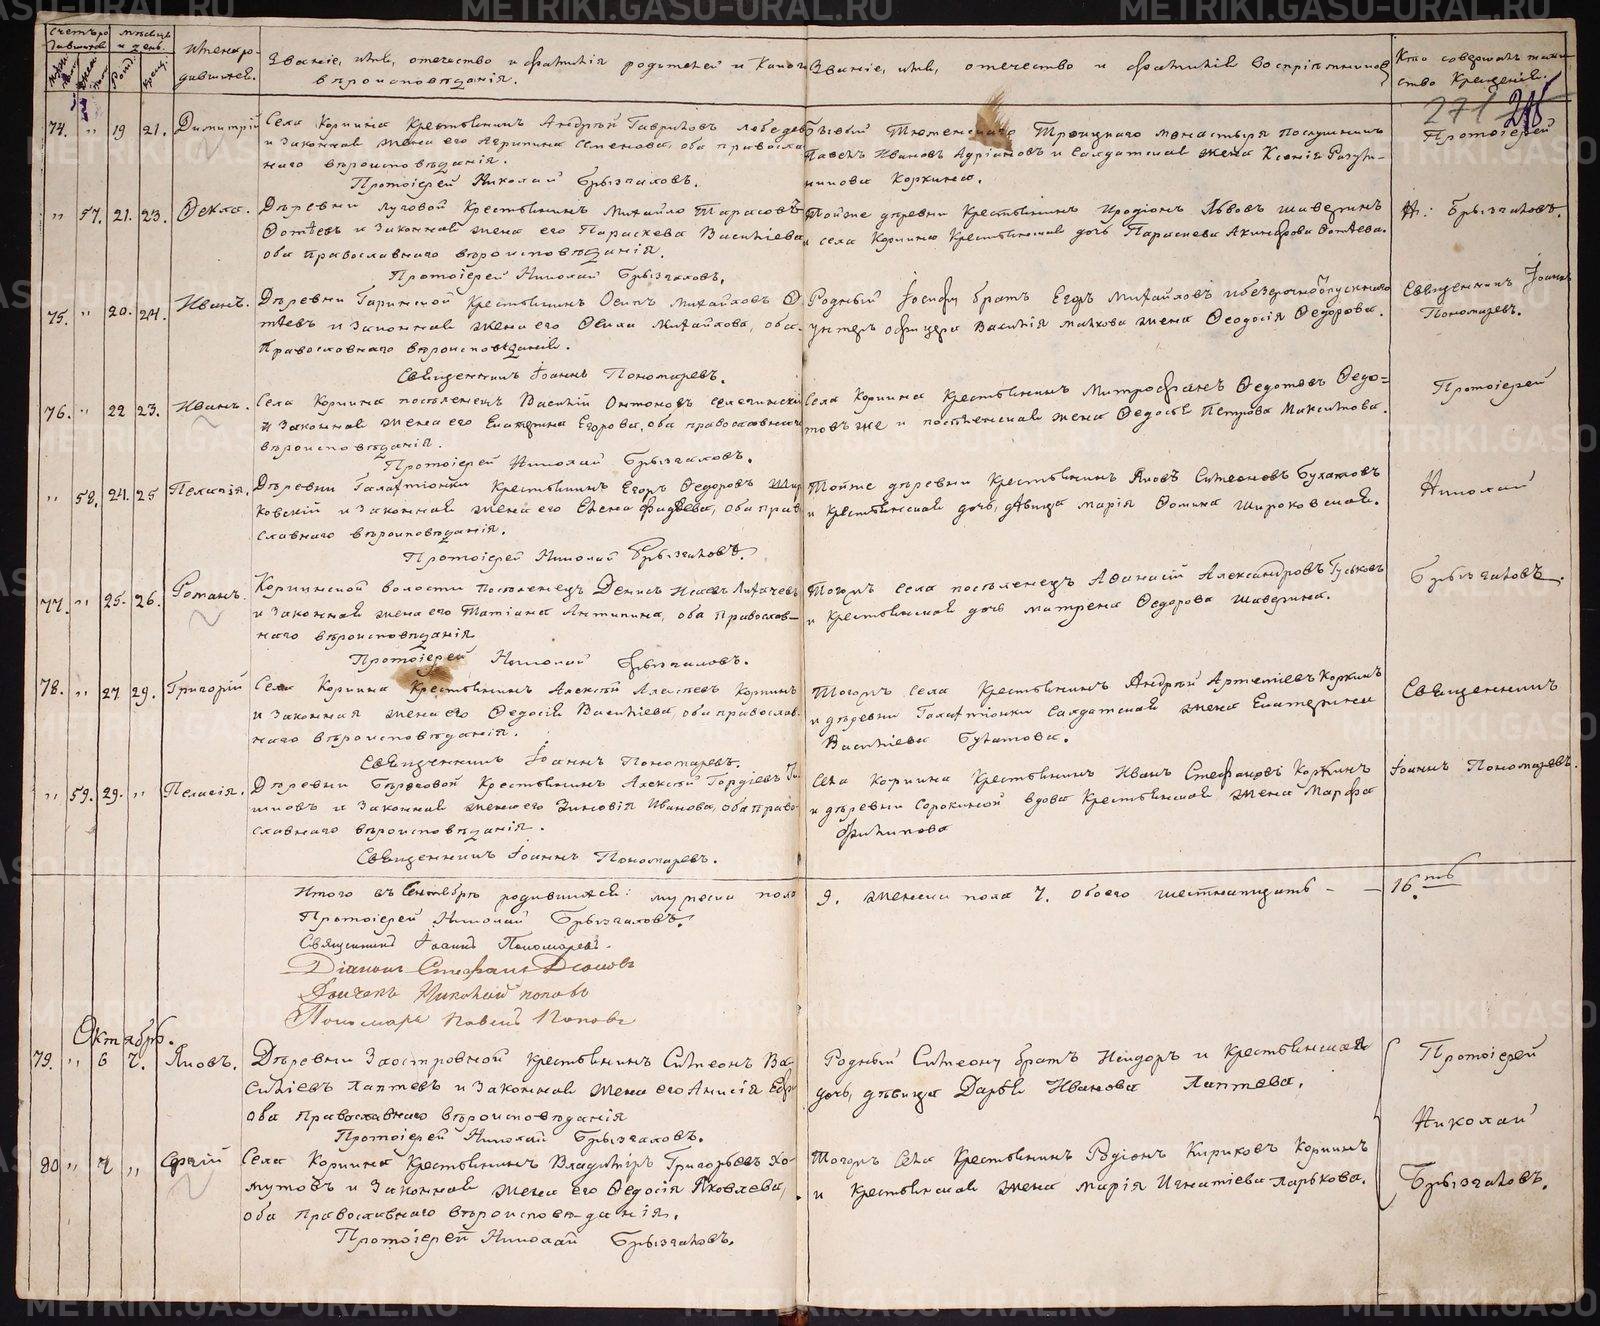 METRIKI.GASU-URAL.RU
Счетъ родившихся
мѣсяцъ и день
Имена родившихся.
Званіе, имя, отечество и фамилія родителей и какого
вѣроисповѣданія.
Званіе, имя, отечество и фамилія воспріемниковъ
Кто совершалъ таинство Крещенія.
271
74. " 19 21. Димитрій
Села Коркина Крестьянинъ Андрей Гавриловъ Лебедев
и законная жена его Агрипина Семенова, оба правосла
внаго вѣроисповѣданія.
Протоіерей Николай Брызгаловъ.
Бывый Тюменскаго Троицкаго монастыря послушникъ
Павелъ Ивановъ Адріановъ и Солдатская жена Ксенія
Коркина.
Протоіерей
" 57. 21. 23. Ѳекла.
Деревни Луговой Крестьянинъ Михайло Тарасовъ
Ѳотѣевъ и законная жена его Параскева Васильева
оба православнаго вѣроисповѣданія.
Протоіерей Николай Брызгаловъ.
Тойже деревни Крестьянинъ Иродіонъ Львовъ Шаверинъ
и села Коркино Крестьянская дочь Параскева Ѳотѣева.
Н: Брызгаловъ.
75. " 20. 24. Иванъ.
Деревни Гаринской Крестьянинъ Осипъ Михайловъ Ѳо
тѣевъ и законная жена его Ѳекла Михайлова, оба
Православнаго вѣроисповѣданія.
Священникъ Іоаннъ Пономаревъ.
Родный Іосифу братъ Егоръ Михайловъ и безсрочноотпускнаго
унтеръ офицера Василія жена Ѳеодосія Ѳедорова.
Священникъ Іоаннъ
Пономаревъ.
76. " 22 23. Иванъ.
Села Коркина поселенецъ Василій Онтоновъ
и законная жена его Екатерина Егорова, оба православнаго
вѣроисповѣданія.
Протоіерей Николай Брызгаловъ.
Села Коркина Крестьянинъ Митрофанъ Ѳедотовъ Ѳедо-
товъ же и поселенская жена Ѳедосья Петрова Максимова.
Протоіерей
" 58. 24. 25 Пелагія.
Деревни Галактіонки Крестьянинъ Егоръ Ѳедоровъ Широ
ковскій и законная жена его Елена Фадѣева, оба право
славнаго вѣроисповѣданія.
Протоіерей Николай Брызгаловъ.
Тойже деревни Крестьянинъ Яковъ Симеоновъ Булатовъ
и крестьянская дочь, дѣвица Марія Ѳомина Широковская.
Николай
77. " 25. 26. Романъ.
Коркинской волости поселенецъ Денисъ Исаевъ Лихачевъ
и законная жена его Татіана Антипина, оба Православ-
наго вѣроисповѣданія
Протоіерей Николай Брызгаловъ.
Тогожъ села поселенецъ Аѳанасій Александровъ Гуськовъ
и Крестьянская дочь Матрена Ѳедорова Шаверина.
Брызгаловъ.
78. " 27 29. Григорій
Села Коркина Крестьянинъ Алексѣй Алексѣевъ Коркинъ
и законная жена его Ѳедосія Васильева, оба православ-
наго вѣроисповѣданія.
Священникъ Іоаннъ Пономаревъ.
Тогожъ села Крестьянинъ Андрей Артеміевъ Коркинъ
и деревни Галактіонки Солдатская жена Екатерина
Васильева Булатова.
Священникъ
" 59. 29. " Пелагія.
Деревни Береговой Крестьянинъ Алексѣй Гордіевъ
и законная жена его Зиновія Иванова, оба право-
славнаго вѣроисповѣданія.
Священникъ Іоаннъ Пономаревъ.
Села Коркина Крестьянинъ Иванъ Стефановъ Коркинъ
и деревни Сорокинской вдова Крестьянская жена Марфа
Филипова
Іоаннъ Пономаревъ.
Итого въ Сентябрѣ родившихся: мужеска пола 9. женска пола 7. обоего шестнадцать - - 16.
Протоіерей Николай Брызгаловъ.
Священникъ Іоаннъ Пономаревъ.
Діаконъ Стефанъ
Дьячекъ Николай Поповъ
Пономарь Павелъ Поповъ
Октябрь.
79. " 6 7. Яковъ.
Деревни Заостровной крестьянинъ Симеонъ Ва-
силіевъ Лаптевъ и законная жена его Анисія
оба православнаго вѣроисповѣданія
Протоіерей Николай Брызгаловъ.
Родный Симеону братъ Исидоръ и Крестьянская
дочь, дѣвица Дарья Иванова Лаптева.
Протоіерей
80 " 7 " Сергій
Села Коркина Крестьянинъ Владиміръ Григорьевъ Хо-
мутовъ и законная жена его Ѳедосія Яковлева,
оба православнаго вѣроисповѣданія.
Протоіерей Николай Брызгаловъ.
Тогожъ села Крестьянинъ Родіонъ Кириковъ Коркинъ
и Крестьянская жена Марія Игнатіева Ларькова.
Николай
Брызгаловъ.